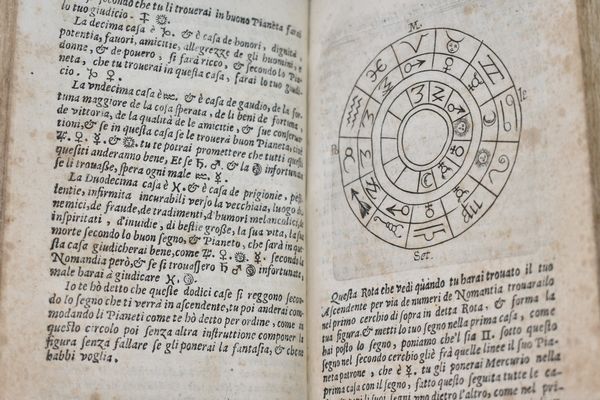 se secondo che tu li trouerai in buono Pianeta farai
lo tuo giudicio. ☿ ☼
La decima casa è ♑. & è casa de honori, dignità
potentia, fauori, amicitie, allegrezze de gli huomini, e
donne, & de pouero, si farà ricco, & secondo lo Pia-
neta, che tu trouerai in questa casa, farai lo tuo giudi-
cio. ♑ ♀.
La vndecima casa è ♒. & è casa de gaudio, de la for-
tuna maggiore de la cosa sperata, de li beni de fortuna,
de vittoria, de la qualità de le amicitie, & sue conserua-
tioni, & se in questa casa se le trouerà buon Pianeta, cioè
♃. ♀. ☿. & ☼. tu te potrai promettere che tutti questi
quesiti anderanno bene, Et se ♄. ♂. & la ☼ infortunata
se li trouasse, spera ogni male ♒. ☿.
La Duodecima casa è ♓. & è casa de prigionie, pesti-
lentie, infirmita incurabili verso la vecchiaia, luogo di
nemici, de fraude, de tradimenti, d'humori melancolici, de
inspiritati, d'inuidie, di bestie grosse, la sua vita, la sua
morte secondo lo buon segno, & Pianeto, che sarà in que-
sta casa giudicherai bene, come ♃. ♀. ☼. ☿. secondo la
Nomandia però, & se si trouassero ♄ ♂ ☼ infortunate,
male harai à giudicare ♓. ☼.
Io te hò detto che queste dodici case si reggono secon-
do lo segno che ti verrà in ascendente, tu poi anderai com-
modando li Pianeti come te hò detto per ordine, come in
questo circolo poi senza altra instruttione componer la
figura senza fallare se gli ponerai la fantasia, & che ne
habbi voglia.
M.
♈ ♉ ♊ ♋ ♌ ♍ ♎ ♏ ♐ ♑ ♒ ♓
Set.
Questa Rota che vedi quando tu harai trouato il tuo
Ascendente per via de numeri de Nomantia trouarailo
nel primo cerchio di sopra in detta Rota, & forma la
tua figura & metti lo tuo segno nella prima casa, come
hai posto lo segno, poniamo che'l sia ♊. sotto questo
segno nel secondo cerchio gliè frà quelle linee il suo Pia-
neta patrone, che è ☿. tu gli ponerai Mercurio nella
prima casa con il segno, fatto questo seguita tutte le ca-